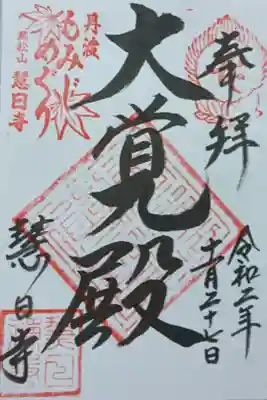 奉拝
令和二年
十一月二十七日
大覚殿
慧日寺
丹波
もみじ
めぐり
慧日寺